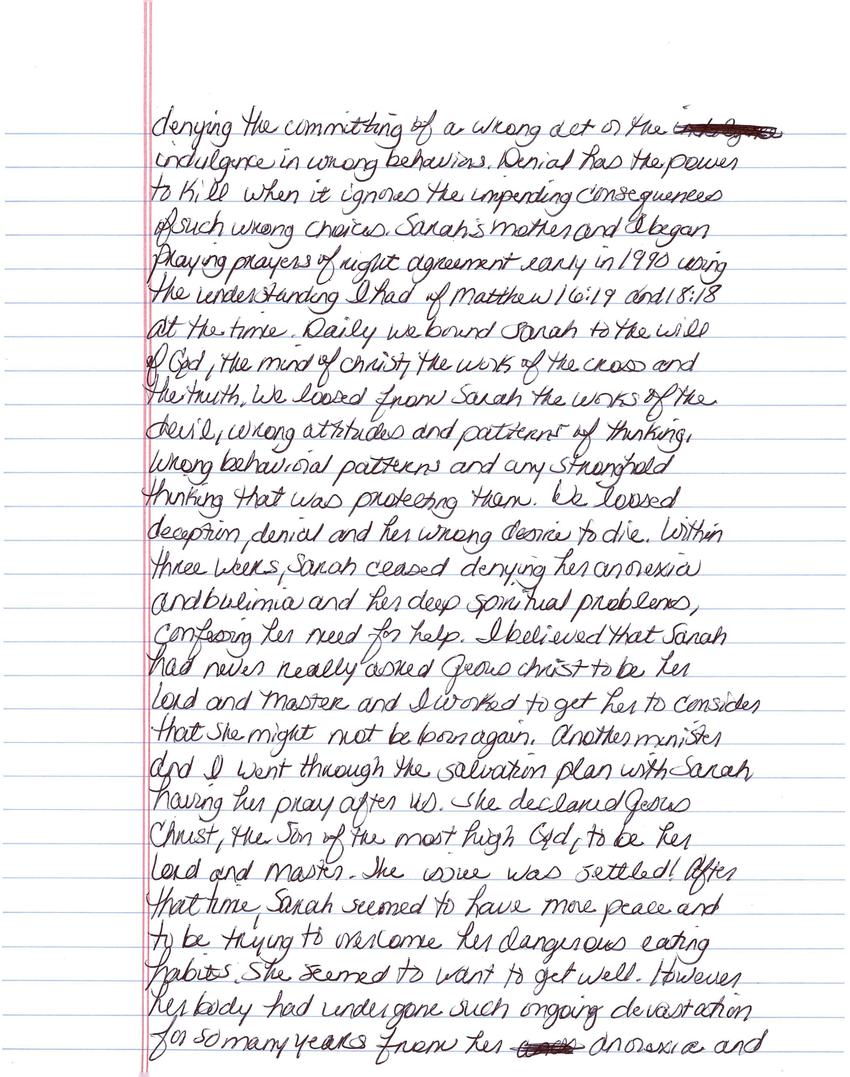 denying the committing of a wrong act or the
indulgence in wrong behaviors. Denial has the power
to kill when it ignores the impending consequences
of such wrong choices. Sarah's mother and I began
praying prayers of right agreement early in 1990 using
the understanding I had of Matthew 16:19 and 18:18
at the time. Daily we bound Sarah to the will
of God, the mind of christ, the work of the cross and
the truth. We loosed from Sarah the works of the
devil, wrong attitudes and patterns of thinking,
wrong behavioral patterns and any stronghold
thinking that was protecting them. We loosed
deception, denial and her wrong desire to die. Within
three weeks, Sarah ceased denying her anorexia
and bulimia and her deep spiritual problems,
confessing her need for help. I believed that Sarah
had never really asked Jesus christ to be her
lord and Master and I worked to get her to consider
that she might not be born again. Another minister
and I went through the salvation plan with Sarah,
having her pray after us. She declared Jesus
Christ, the Son of the most high God, to be her
lord and master. The issue was settled! After
that time, Sarah seemed to have more peace and
to be trying to overcome her dangerous eating
habits. She seemed to want to get well. However
her body had undergone such ongoing devastation
for so many years from her anorexia and